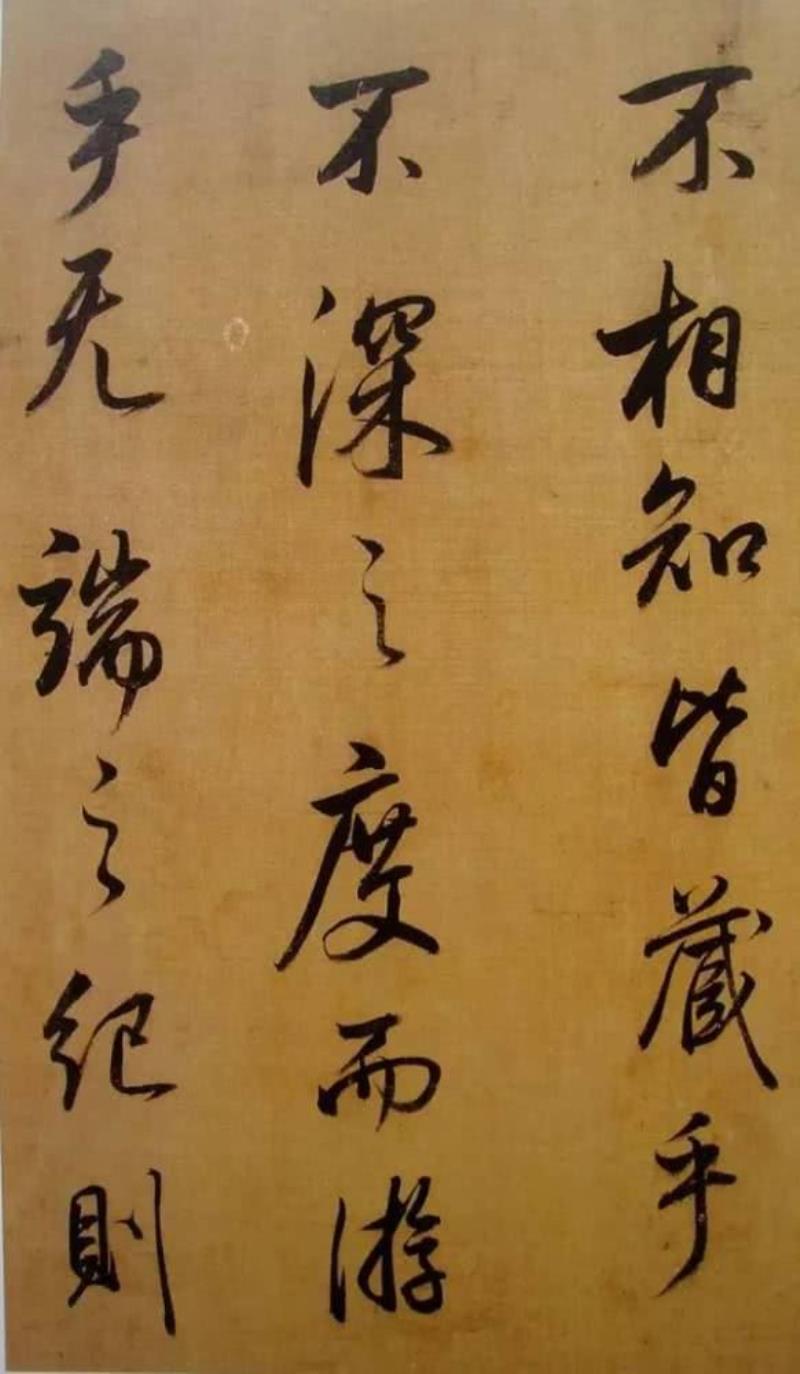 不相知皆藏乎
不深之度而游
乎无端之纪則